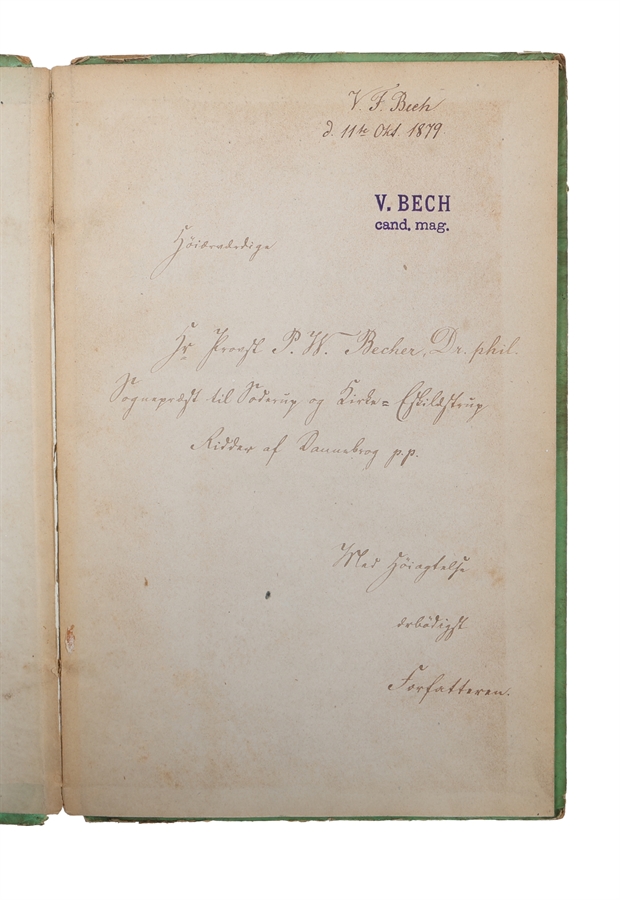 V. F. Bech
d. 11te Okt. 1879.
V. BECH
cand. mag.
Höiærværdige
Hr Provst P. W. Becher, Dr. phil.
Sognepræst til Söderup og Kirke=Eskildstrup
Ridder af Dannebrog p.p.
Med Höiagtelse
ærbödigst
Forfatteren.